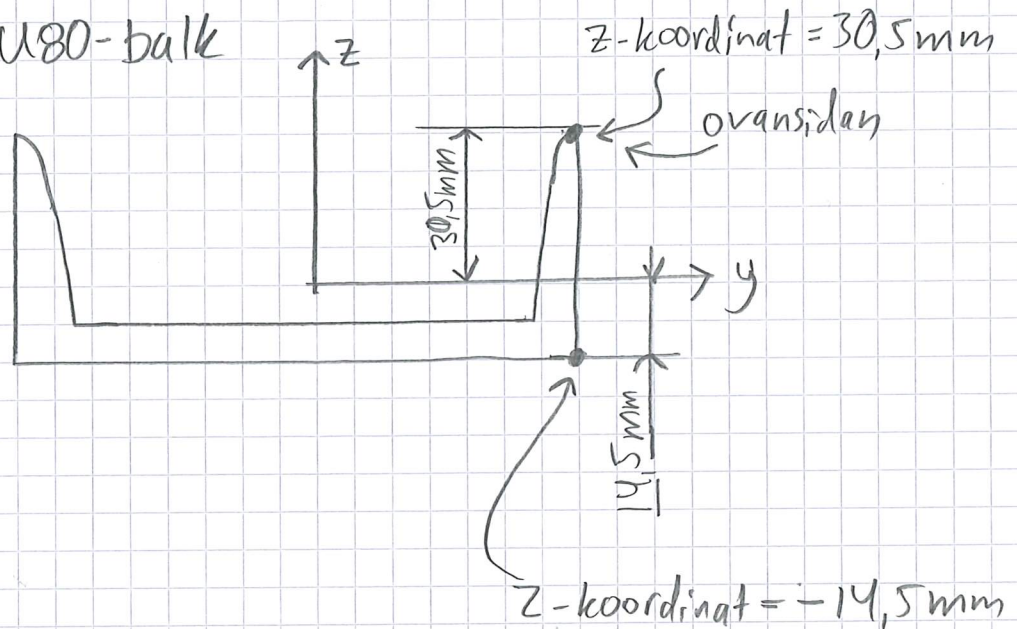 U80-balk
z
z-koordinat = 30,5mm
ovansidan
30,5mm
y
14,5mm
z-koordinat = -14,5mm